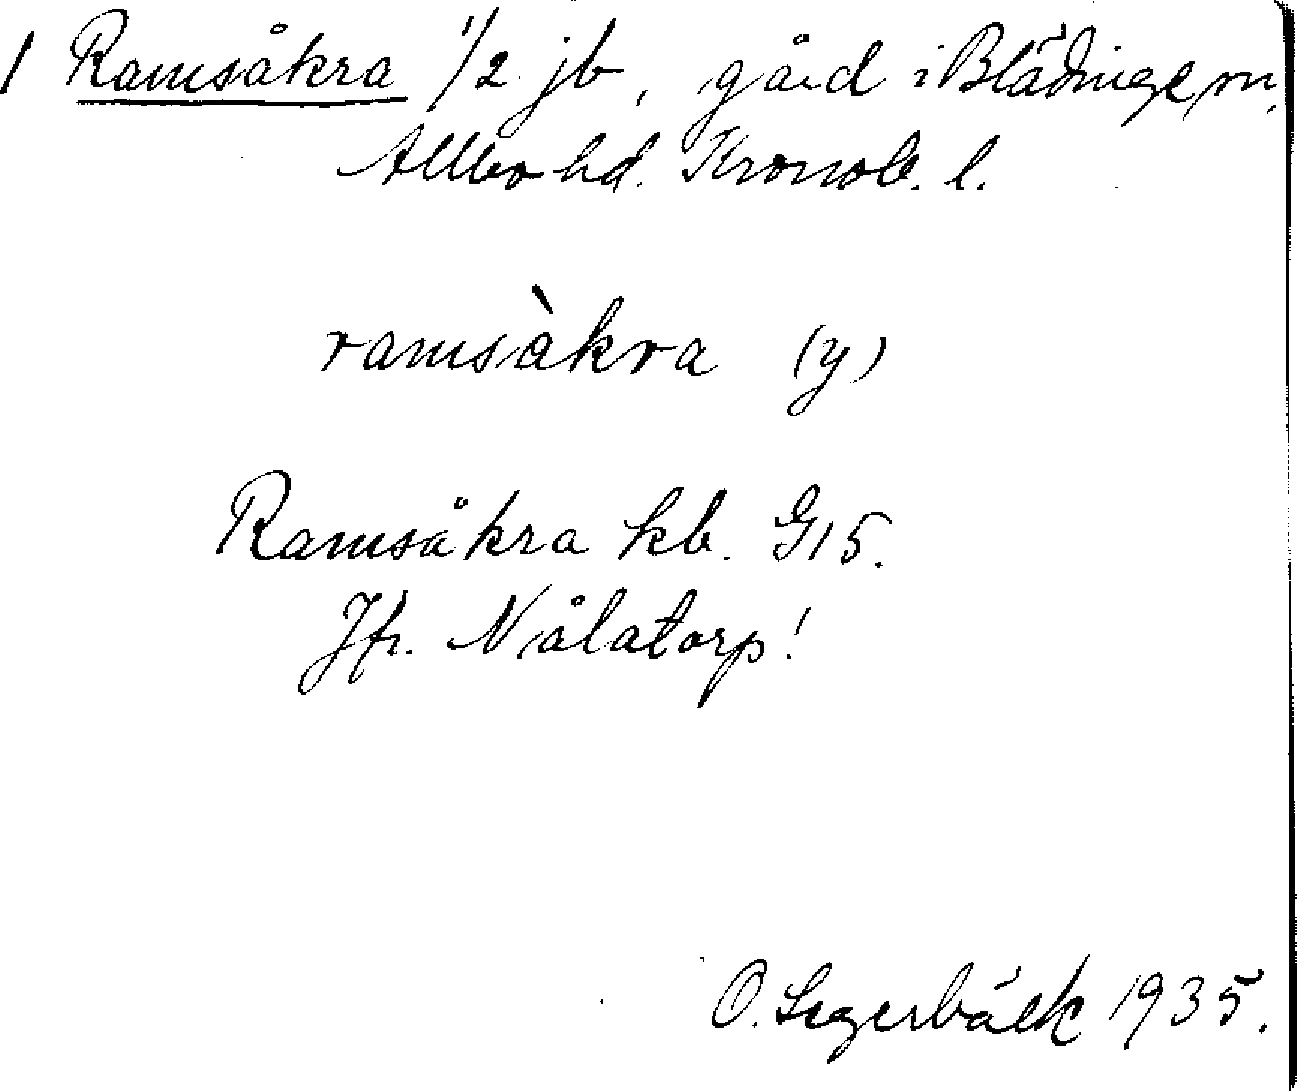 1 Ramsåkra 1/2 jb, gård i Blädinge sn,
Allbo hd. Kronob. l.
ramsàkra (y)
Ramsåkra kb. G15.
Jfr. Nålatorp!
O. Segerbäck 1935.